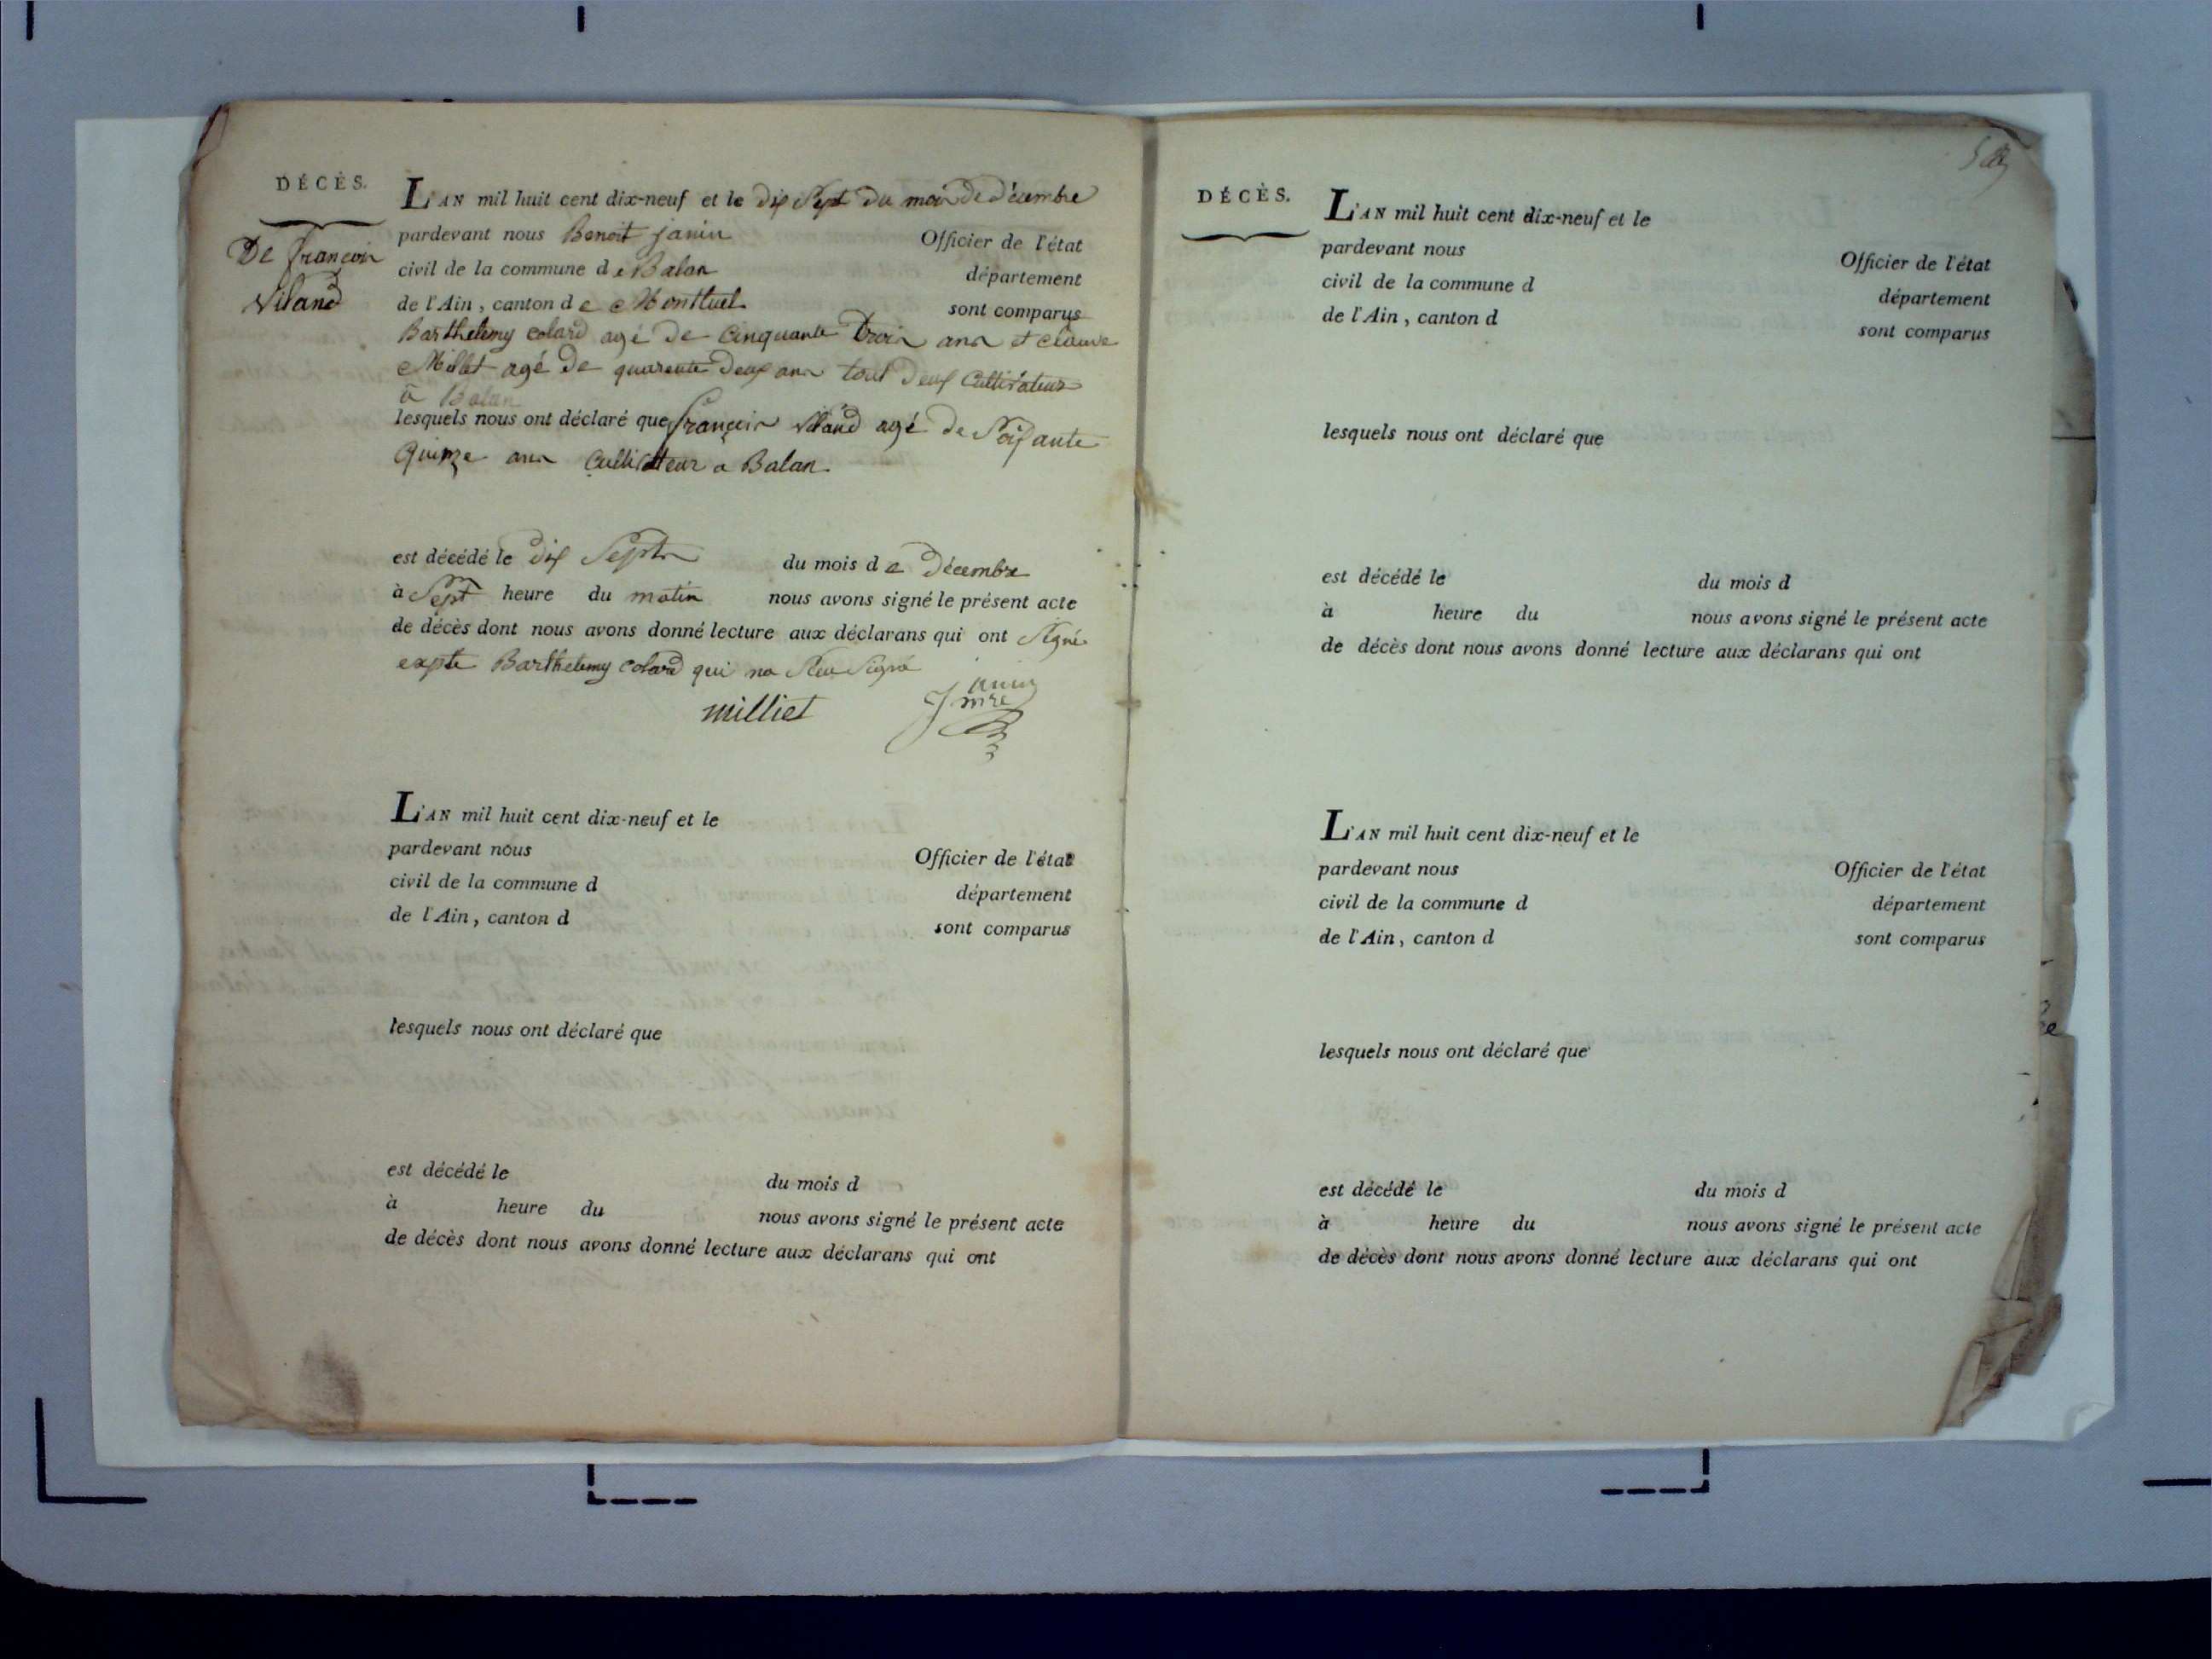 DÉCÈS.
De françois
viland
L'AN mil huit cent dix-neuf et le dix Sept du mois de décembre
pardevant nous Benoit janin Officier de l'état
civil de la commune de Balan département
de l'Ain, canton de Montluel sont comparus
Barthelemy colard agé de cinquante trois ans et claude
Millet agé de quarente deux ans tout deux Cultivateur
a Balan
lesquels nous ont déclaré que françois viland agé de Soixante
quinze ans Cultivateur a Balan
est décédé le dix Sept du mois de décembre
à Sept heure du matin nous avons signé le présent acte
de décès dont nous avons donné lecture aux déclarans qui ont Signé
expte Barthelemy colard qui na Seu Signé
milliet janin
mre
L'AN mil huit cent dix-neuf et le
pardevant nous Officier de l'état
civil de la commune d département
de l'Ain, canton d sont comparus
lesquels nous ont déclaré que
est décédé le du mois d
à heure du nous avons signé le présent acte
de décès dont nous avons donné lecture aux déclarans qui ont
DÉCÈS.
L'AN mil huit cent dix-neuf et le
pardevant nous Officier de l'état
civil de la commune d département
de l'Ain, canton d sont comparus
lesquels nous ont déclaré que
est décédé le du mois d
à heure du nous avons signé le présent acte
de décès dont nous avons donné lecture aux déclarans qui ont
L'AN mil huit cent dix-neuf et le
pardevant nous Officier de l'état
civil de la commune d département
de l'Ain, canton d sont comparus
lesquels nous ont déclaré que
est décédé le du mois d
à heure du nous avons signé le présent acte
de décès dont nous avons donné lecture aux déclarans qui ont